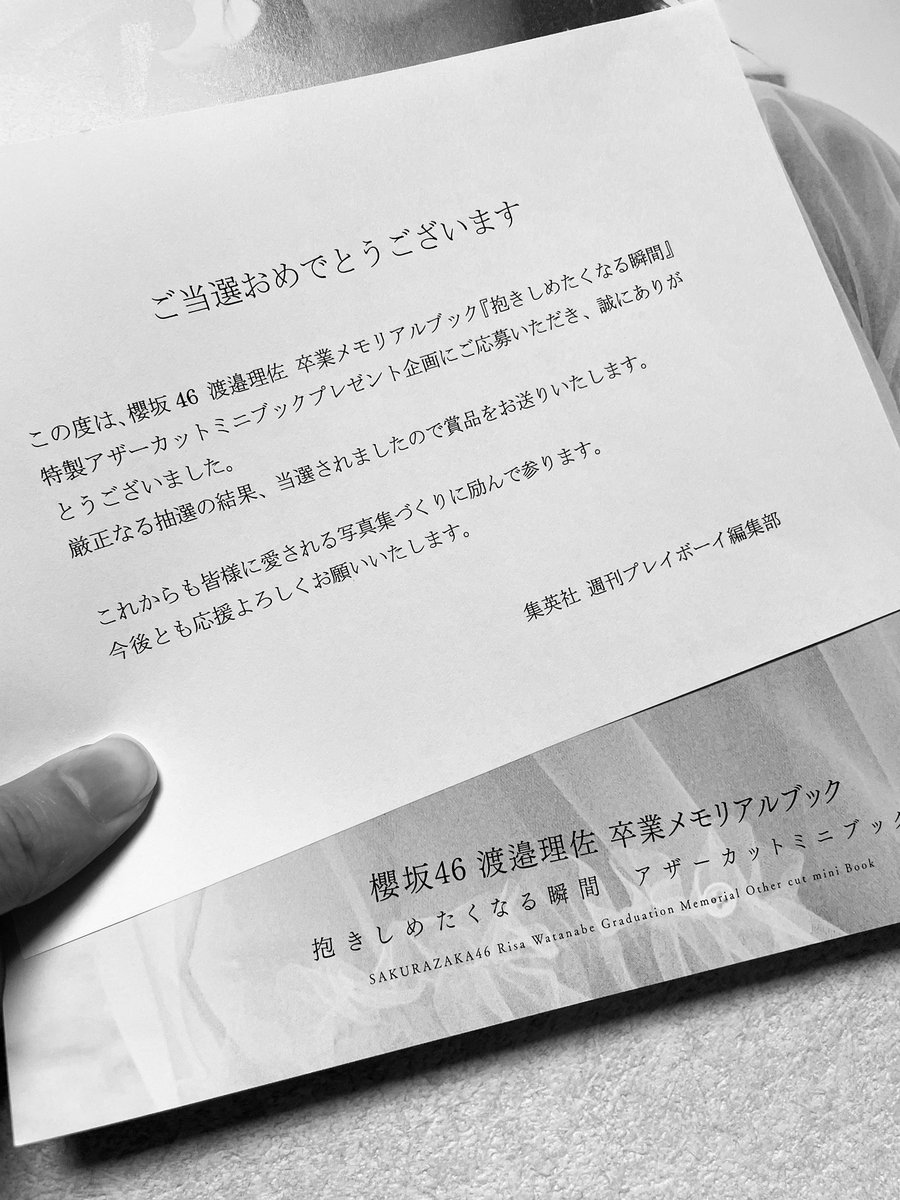 ご当選おめでとうございます
この度は、櫻坂46 渡邉理佐 卒業メモリアルブック『抱きしめたくなる瞬間』
特製アザーカットミニブックプレゼント企画にご応募いただき、誠にありが
とうございました。
厳正なる抽選の結果、当選されましたので賞品をお送りいたします。
これからも皆様に愛される写真集づくりに励んで参ります。
今後とも応援よろしくお願いいたします。
集英社 週刊プレイボーイ編集部
櫻坂46 渡邉理佐 卒業メモリアルブック
抱きしめたくなる瞬間 アザーカットミニブック
SAKURAZAKA46 Risa Watanabe Graduation Memorial Other cut mini Book